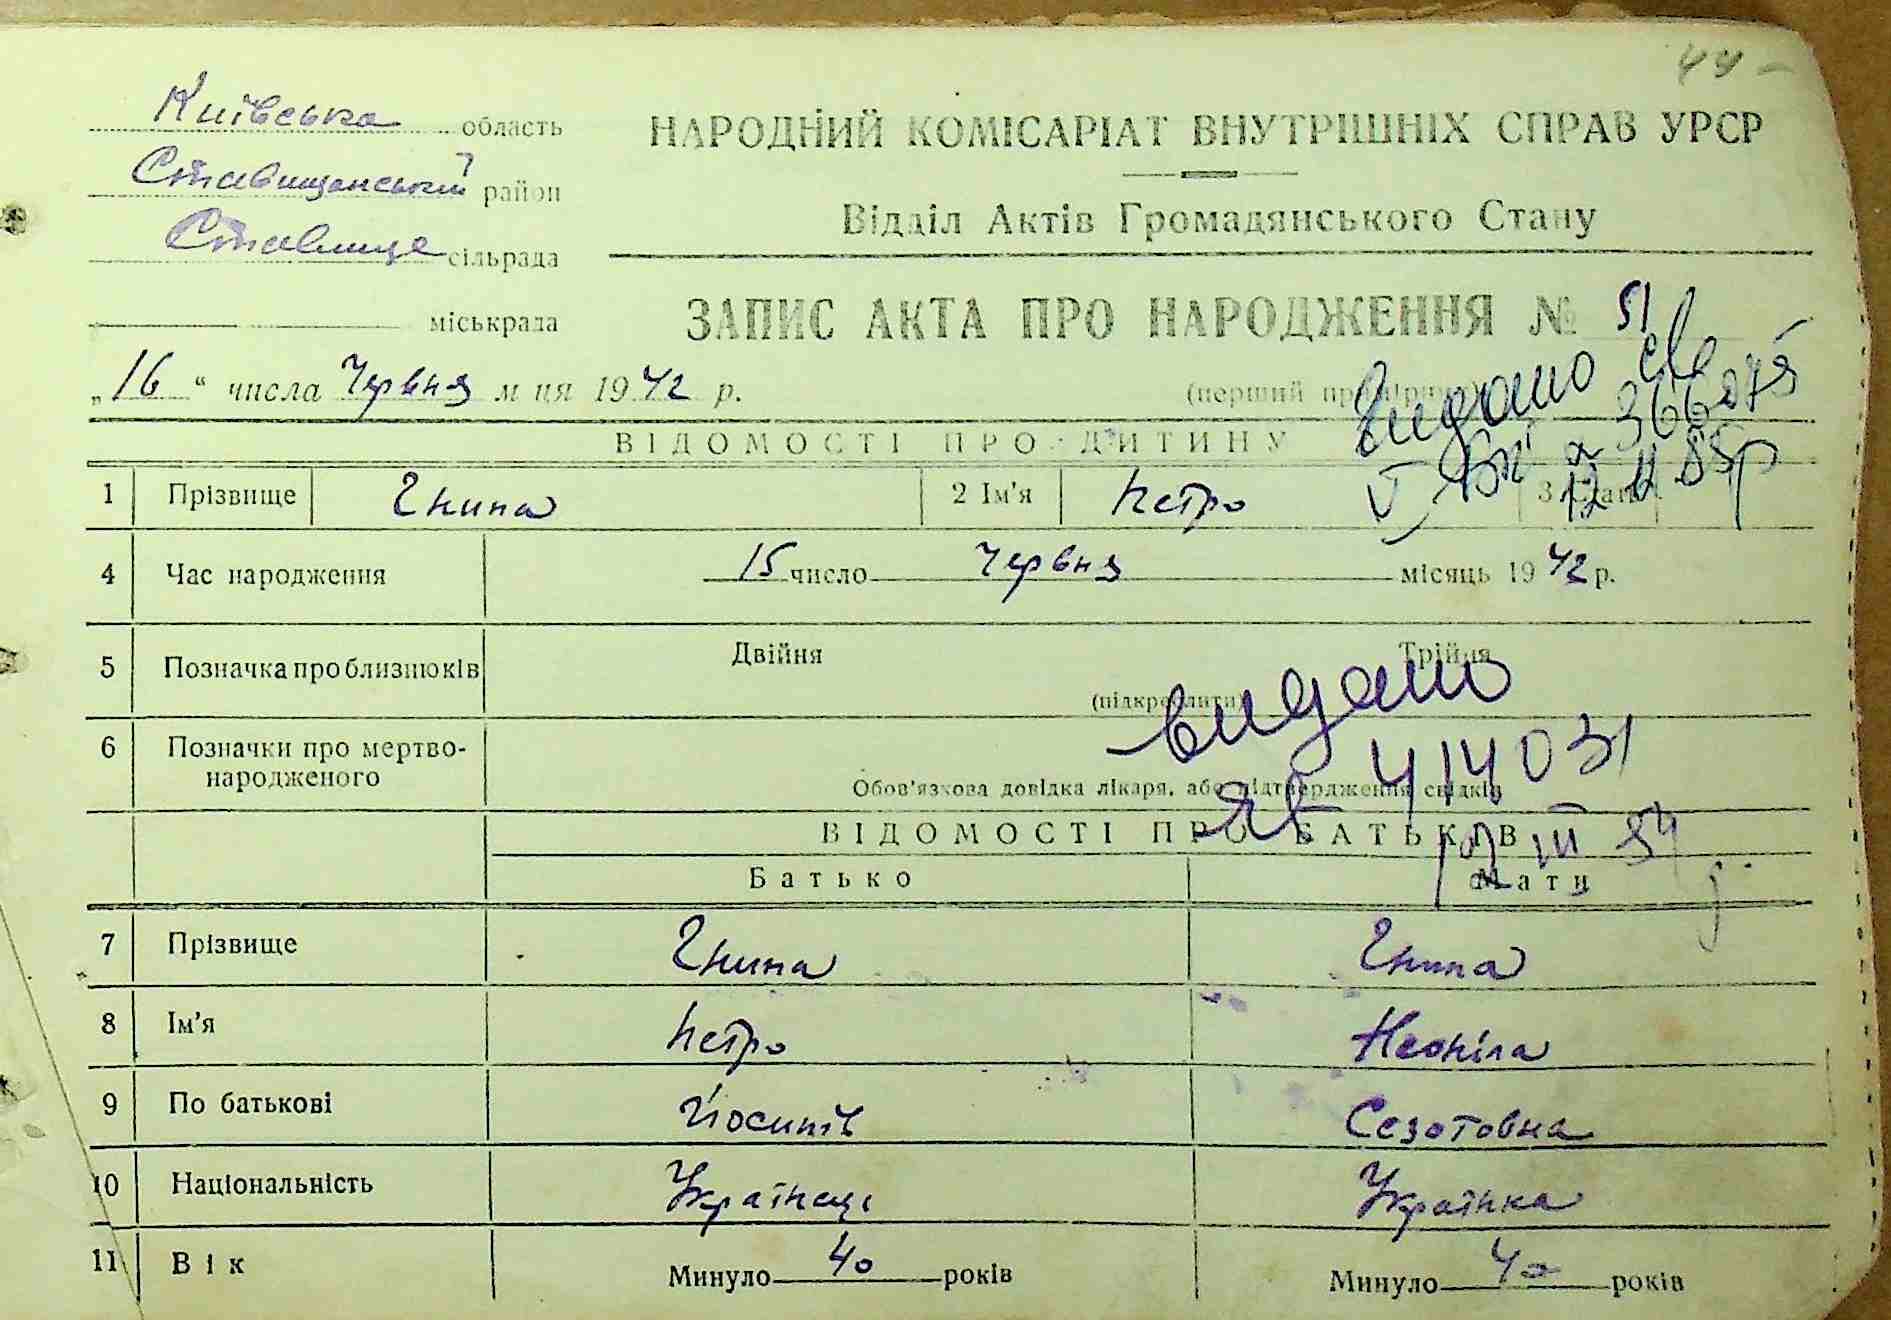 44 -
Київська область
Ставищанський район
Ставище сільрада
міськрада
НАРОДНИЙ КОМІСАРІАТ ВНУТРІШНІХ СПРАВ УРСР
Відділ Актів Громадянського Стану
ЗАПИС АКТА ПРО НАРОДЖЕННЯ № 51
„16“ числа Червня м ця 1942 р.
(перший примірник)
Видано
366275
ВІДОМОСТІ ПРО ДИТИНУ
1 Прізвище Гнипа 2 Ім'я Петро 3 Стать
4 Час народження 15 число Червня місяць 1942 р.
5 Позначка про близнюків Двійня Трійня
(підкреслити)
видано
6 Позначки про мертво-
народженого
414031
Обов'язкова довідка лікаря, або підтвердження свідків
ВІДОМОСТІ ПРО БАТЬКІВ
Батько Мати
7 Прізвище Гнипа Гнипа
8 Ім'я Петро Неоніла
9 По батькові Йосипів Сезотовна
10 Національність Українець Українка
11 Вік Минуло 40 років Минуло 40 років